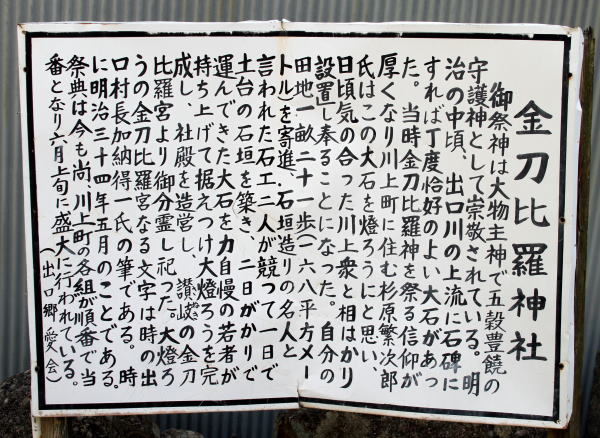 金刀比羅神社
御祭神は大物主神で五穀豊饒の
守護神として崇敬されている。明
治の中頃、出口川の上流に石碑に
すれば丁度恰好のよい大石があっ
た。当時金刀比羅神を祭る信仰が
厚くなり川上町に住む杉原繁次郎
氏はこの大石を燈ろうにと思い、
日頃気の合った川上衆と相はかり
設置し奉ることになった。自分の
田地一畝二十一歩(一六八平方メー
トル)を寄進、石垣造りの名人と
言われた石工二人が競って一日で
土台の石垣を築き、二日がかりで
運んできた大石を力自慢の若者が
持ち上げて据えつけ大燈ろうを完
成し、社殿を造営し、讃岐の金刀
比羅宮より御分霊し祀った。大燈ろ
うの金刀比羅宮なる文字は時の出
口村長加納得一氏の筆である。時
に明治三十四年五月のことである。
祭典は今も尚、川上町の各組が順番で当
番となり六月上旬に盛大に行われている。
(出口郷愛会)